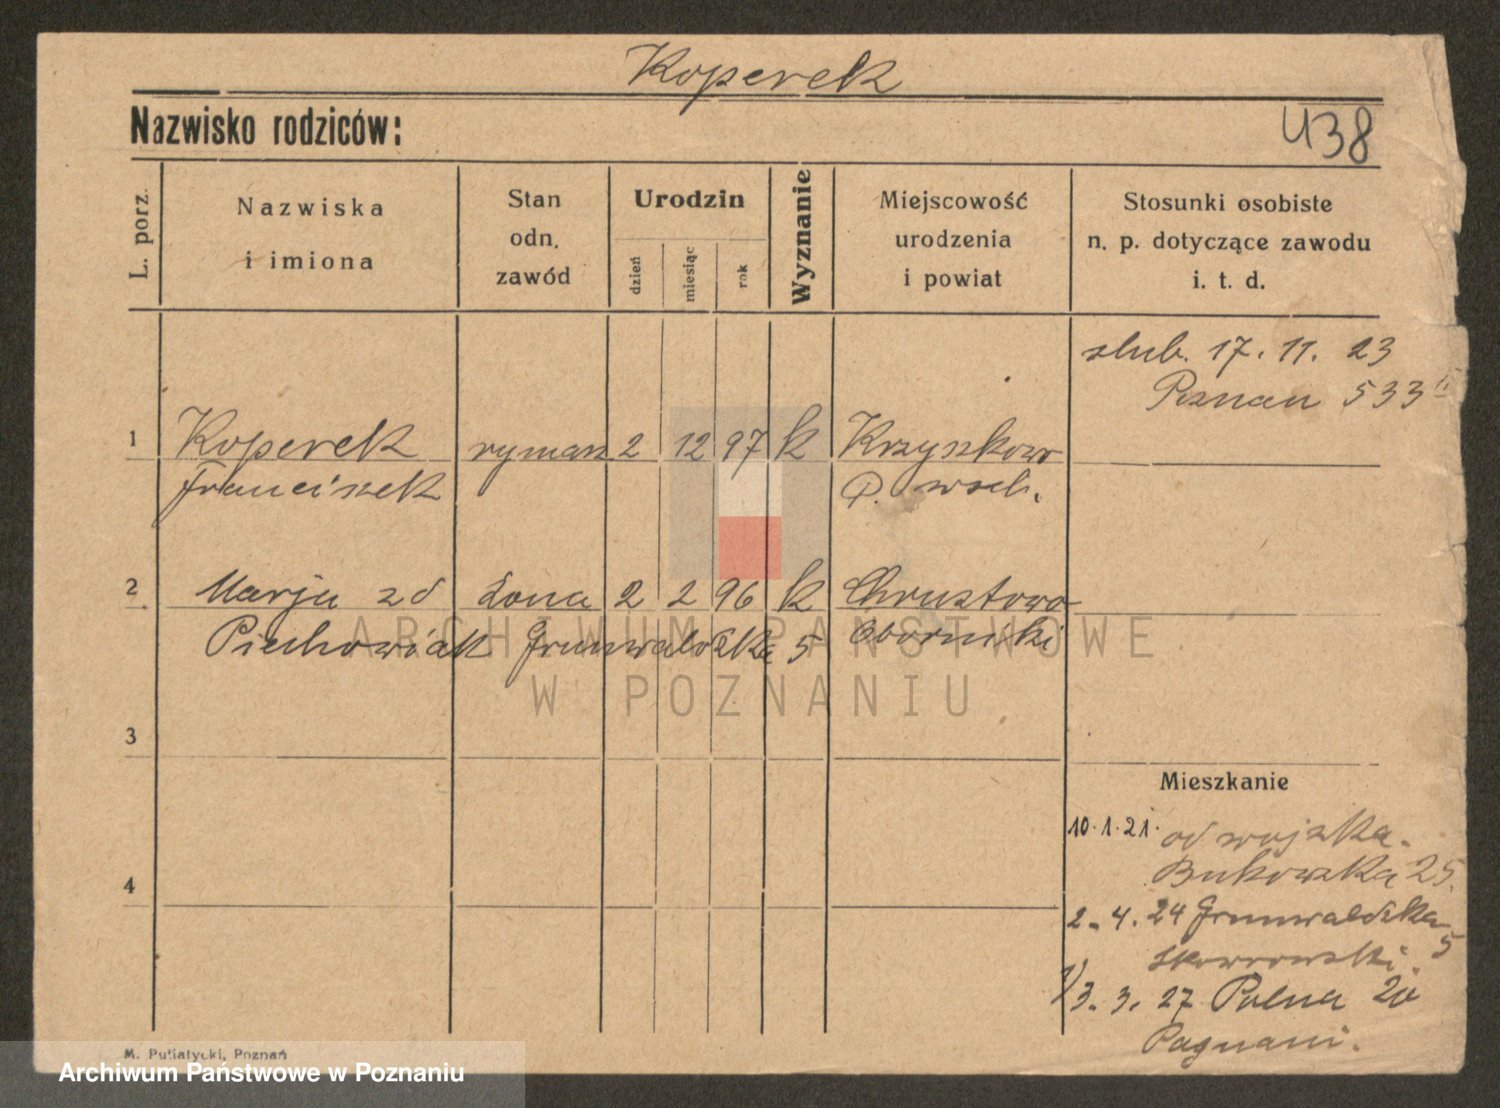 Koperek
Nazwisko rodziców:
438
L. porz.
Nazwiska
i imiona
Stan
odn.
zawód
Urodzin
dzień
miesiąc
rok
Wyznanie
Miejscowość
urodzenia
i powiat
Stosunki osobiste
n. p. dotyczące zawodu
i. t. d.
slub. 17. 11. 23
Poznan 533
1 Koperek rymarz 2 12 97 k Krzyszkowo
Franciszek P. wsch.
2 Marja zd żona 2 2 96 k Chrustowo
Piechowiak Grunwaldzka 5 Oborniki
ARCHIWUM PAŃSTWOWE
W POZNANIU
3
Mieszkanie
10.1.21. od wojska.
Bukowska 25.
4
2. 4. 24 Grunwaldzka 5
Skowronski.
3. 3. 27 Polna 20
Pagnani.
M. Putiatycki, Poznań
Archiwum Państwowe w Poznaniu